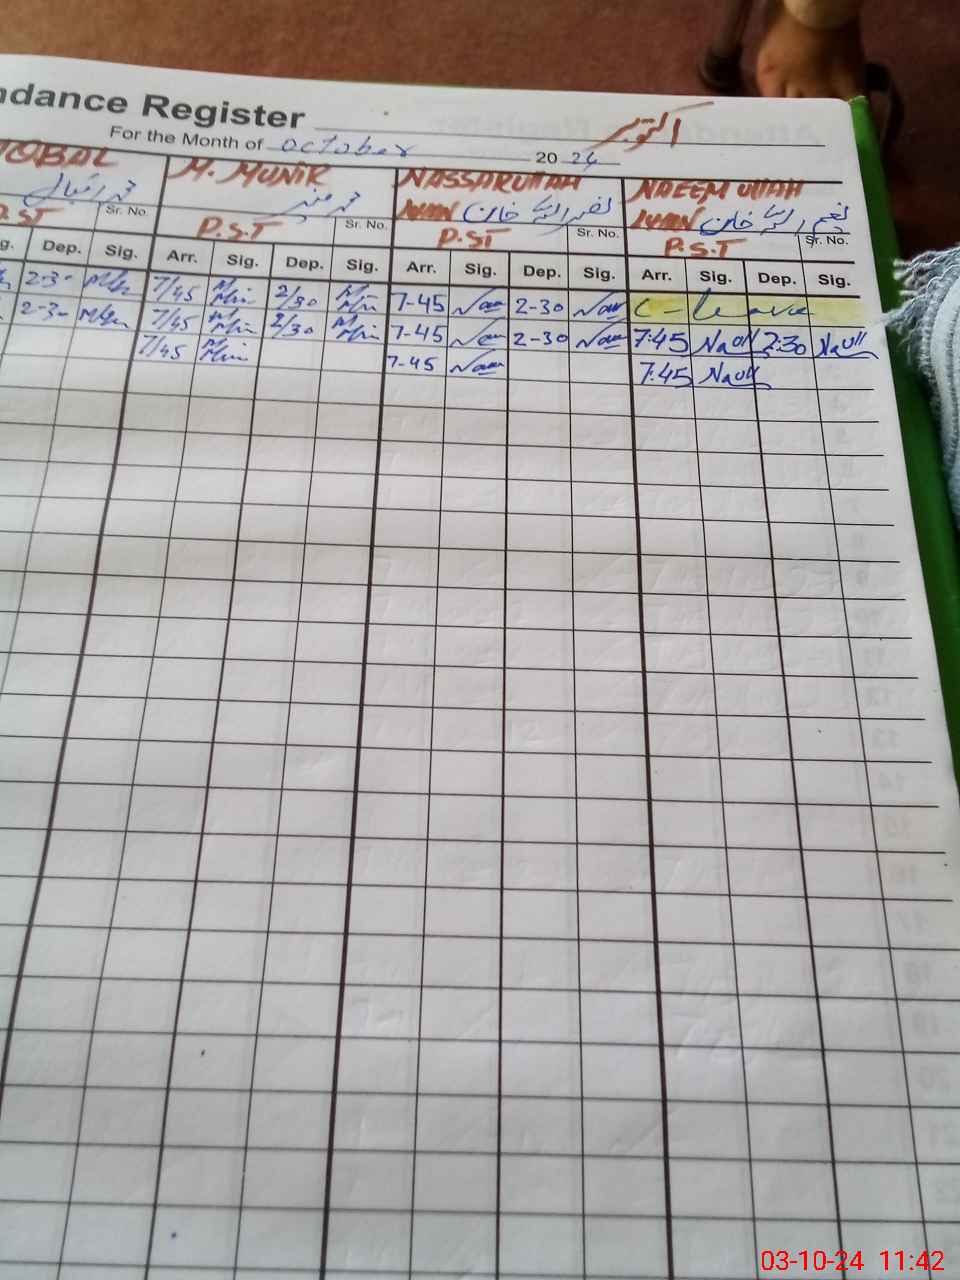 ndance Register
For the Month of October 2024 اکتوبر
IQBAL M. MUNIR NASSARULLAH NAEEM ULLAH
محمد اقبال محمد منیر KHAN نصر اللہ خان KHAN نعیم اللہ خان
P.ST Sr. No. P.S.T Sr. No. P.ST Sr. No. P.S.T Sr. No.
g. Dep. Sig. Arr. Sig. Dep. Sig. Arr. Sig. Dep. Sig. Arr. Sig. Dep. Sig.
2-30 7/45 2/30 7-45 2-30 C-leave
2-30 7/45 2/30 7-45 2-30 7:45 Naull 2:30 Naull
7/45 7-45 7:45 Naull
03-10-24 11:42